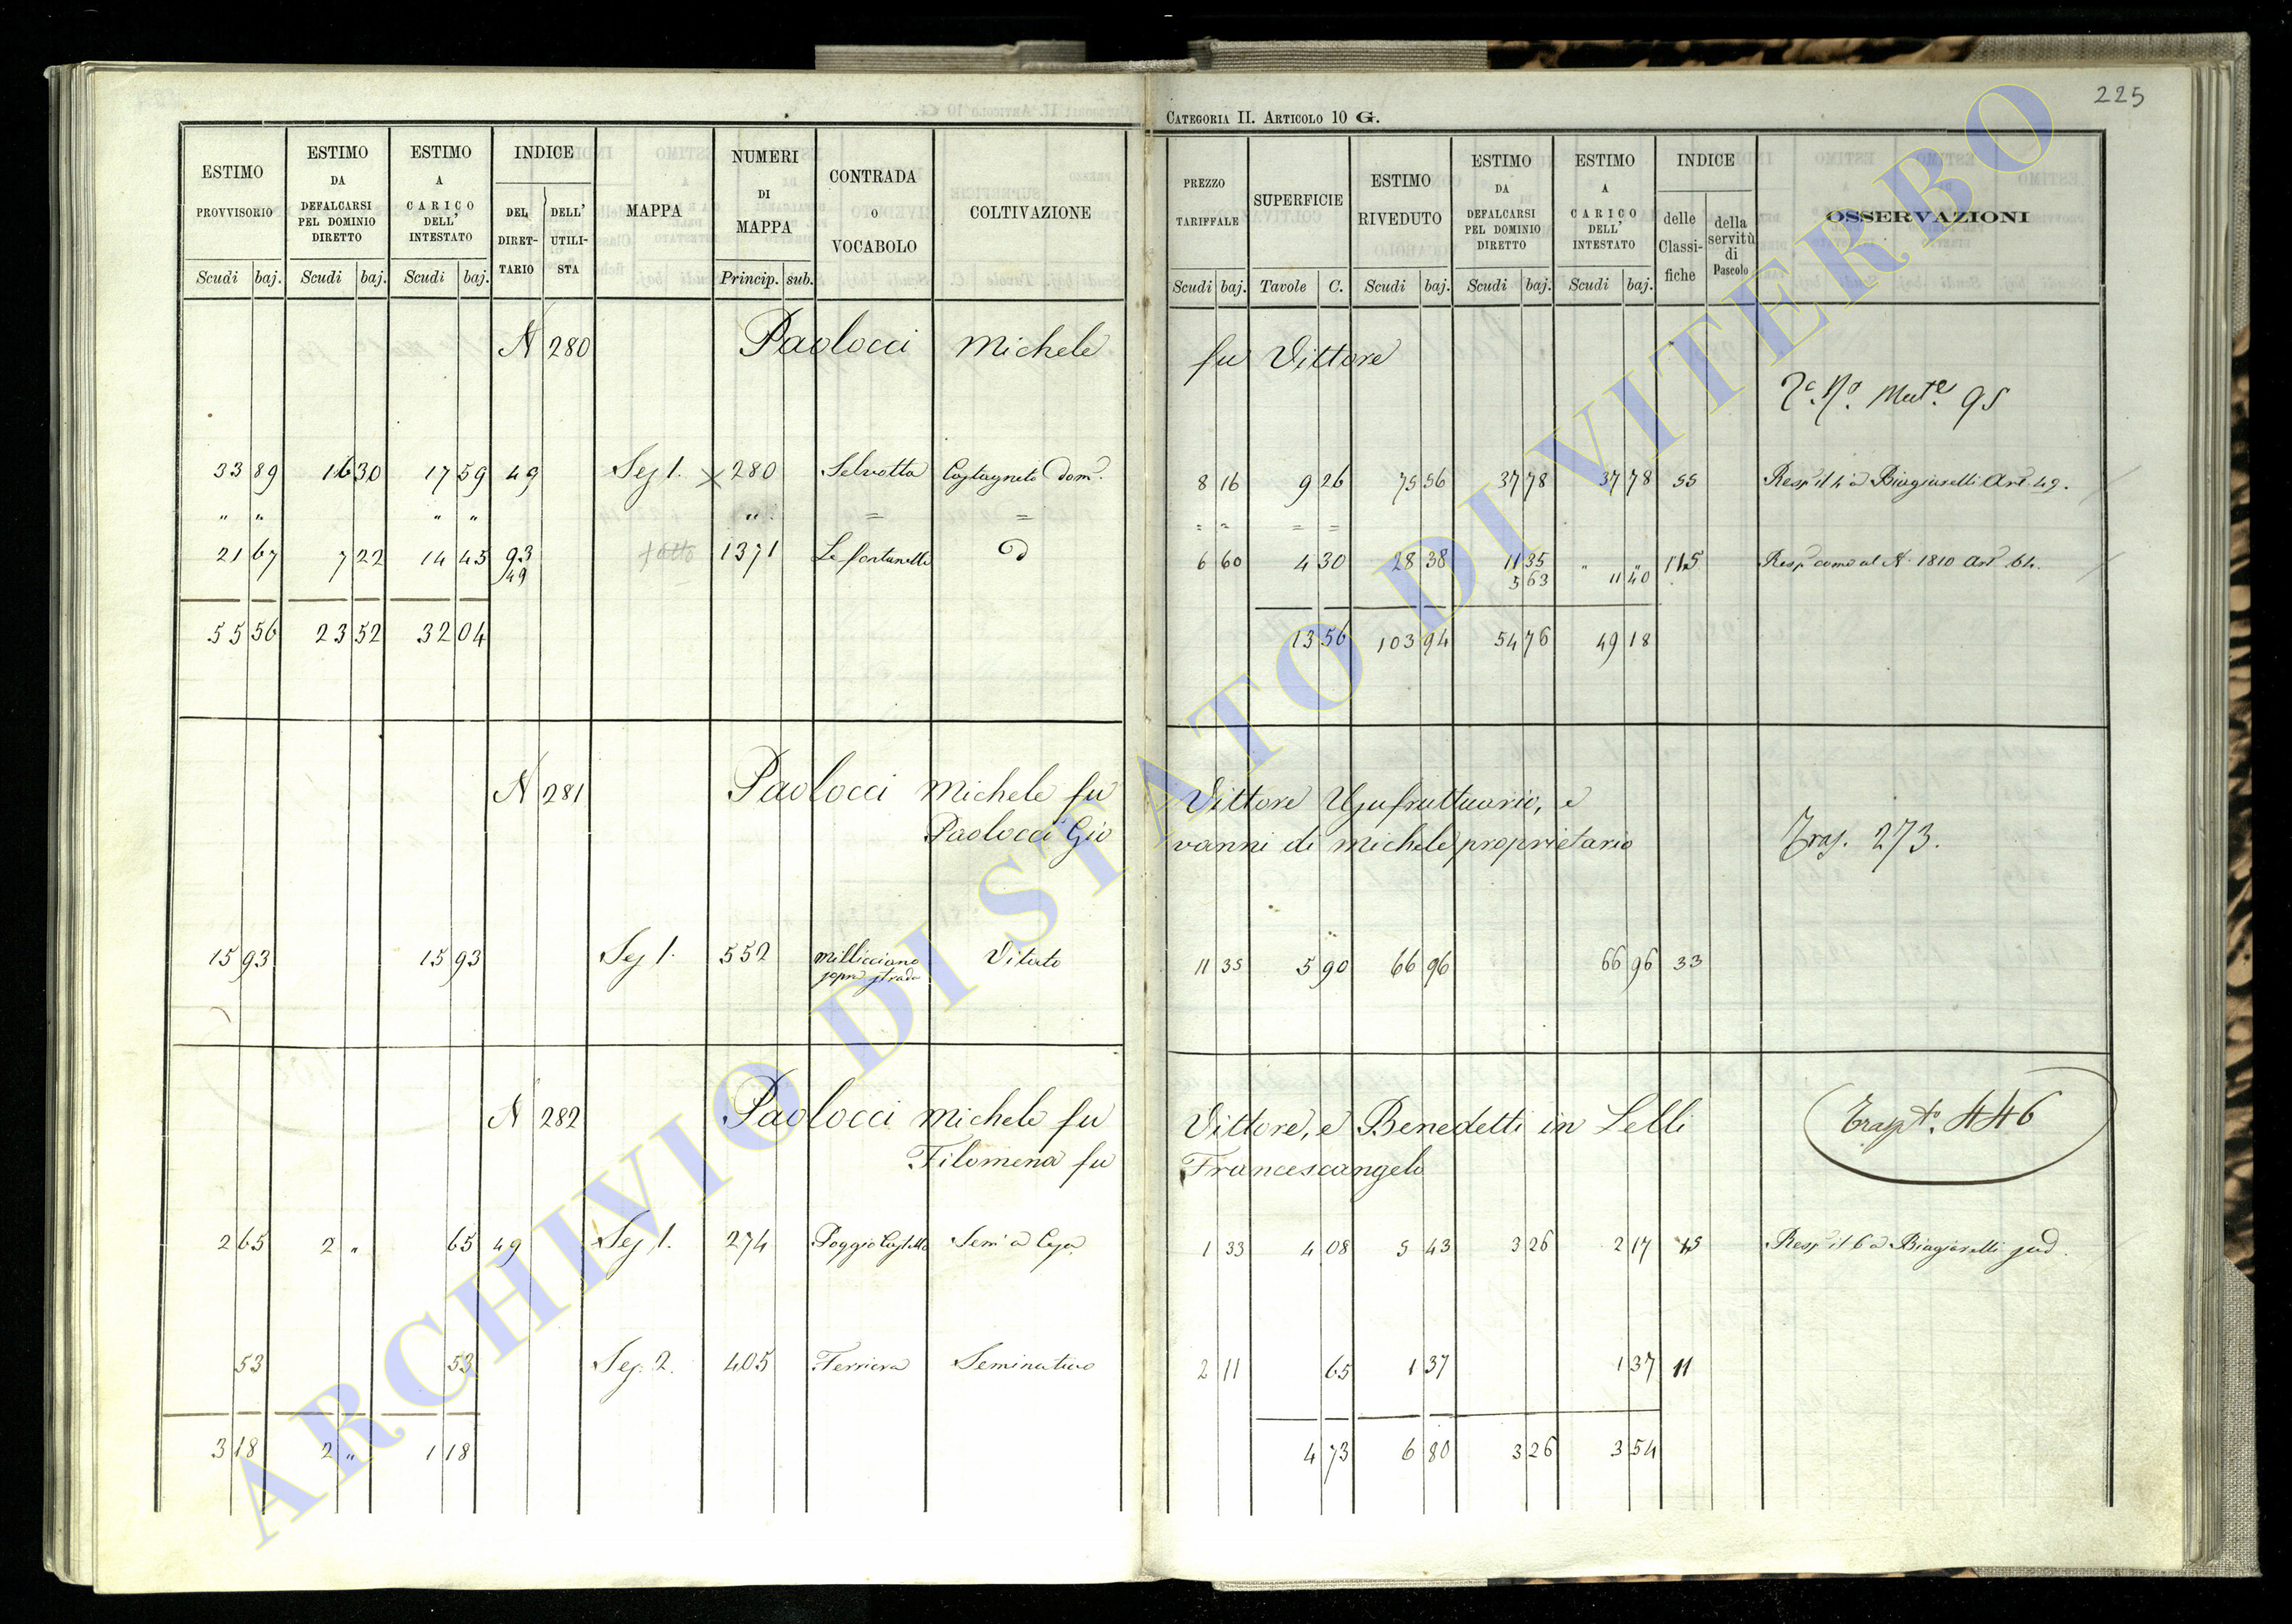 225
CATEGORIA II. ARTICOLO 10 G.
ESTIMO PROVVISORIO Scudi baj.
ESTIMO DA DEFALCARSI PEL DOMINIO DIRETTO Scudi baj.
ESTIMO A CARICO DELL' INTESTATO Scudi baj.
INDICE DEL DIRET-TARIO DELL' UTILI-STA
MAPPA
NUMERI DI MAPPA Princip. sub.
CONTRADA O VOCABOLO
COLTIVAZIONE
PREZZO TARIFFALE Scudi baj.
SUPERFICIE Tavole C.
ESTIMO RIVEDUTO Scudi baj.
ESTIMO DA DEFALCARSI PEL DOMINIO DIRETTO Scudi baj.
ESTIMO A CARICO DELL' INTESTATO Scudi baj.
INDICE delle Classi-fiche della servitù di Pascolo
OSSERVAZIONI
N 280 Paolocci Michele fu Vittore
Mut.e 95
33 89 16 30 17 59 49 Sez 1. × 280 Selvotta Castagneto dom. 8 16 9 26 75 56 37 78 37 78 55 Resp il 4 a Biagiarelli Art 49.
" " " " " " = = = = = =
21 67 7 22 14 45 93 1371 Le fontanelle 6 60 4 30 28 38 11 35 " " 115 Resp come al N. 1810 Art 64.
49 5 63 11 40
55 56 23 52 32 04 13 56 103 94 54 76 49 18
N 281 Paolocci Michele fu Vittore Usufruttuario, e
Paolocci Giovanni di Michele proprietario Tras. 273.
15 93 15 93 Sez 1. 552 Millicciano Vitato 11 35 5 90 66 96 66 96 33
sopra strada
N 282 Paolocci Michele fu Vittore, e Benedetti in Lelli Trasp.to 446
Filomena fu Francescangelo
2 65 2 " 65 49 Sez 1. 274 Poggio Castello Sem a 1 33 4 08 5 43 3 26 2 17 45 Resp il 6 a Biagiarelli sud.
53 53 Sez. 2. 405 Ferriera Seminativo 2 11 65 1 37 1 37 11
3 18 2 " 1 18 4 73 6 80 3 26 3 54
ARCHIVIO DI STATO DI VITERBO